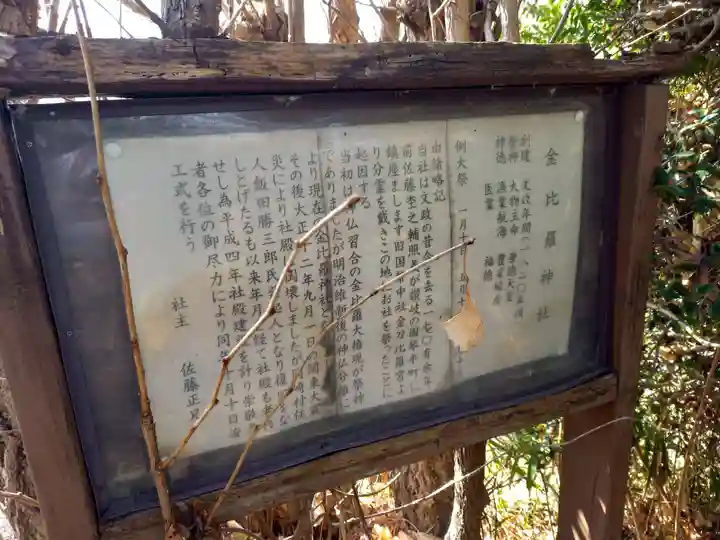 金比羅神社
創建 文政年間(一八二〇年頃
祭神 大物主命 崇徳天皇
神徳 漁業航海 農業殖産
医薬 福徳
例大祭 一月十日
由緒略記
当社は文政の昔今を去る一七〇有余年
前佐藤杢之輔照
鎮座まします旧国幣中社金刀比羅宮よ
り分霊を戴きこの地にお社を祭ったことに
起因する
当初は神仏習合の金比羅大権現が祭神
でありましたが明治維新後の神仏分離に
より現在の金比羅神社と
その後大正十二年九月一日の関東大震
災により社殿は倒壊しましたが
人飯田勝三郎氏発起人となり復
しとげたるも以来年月を経て社殿も老朽
せし為平成四年社殿建
者各位の御尽力により同年十月十日竣
工式を行う
社主 佐藤正